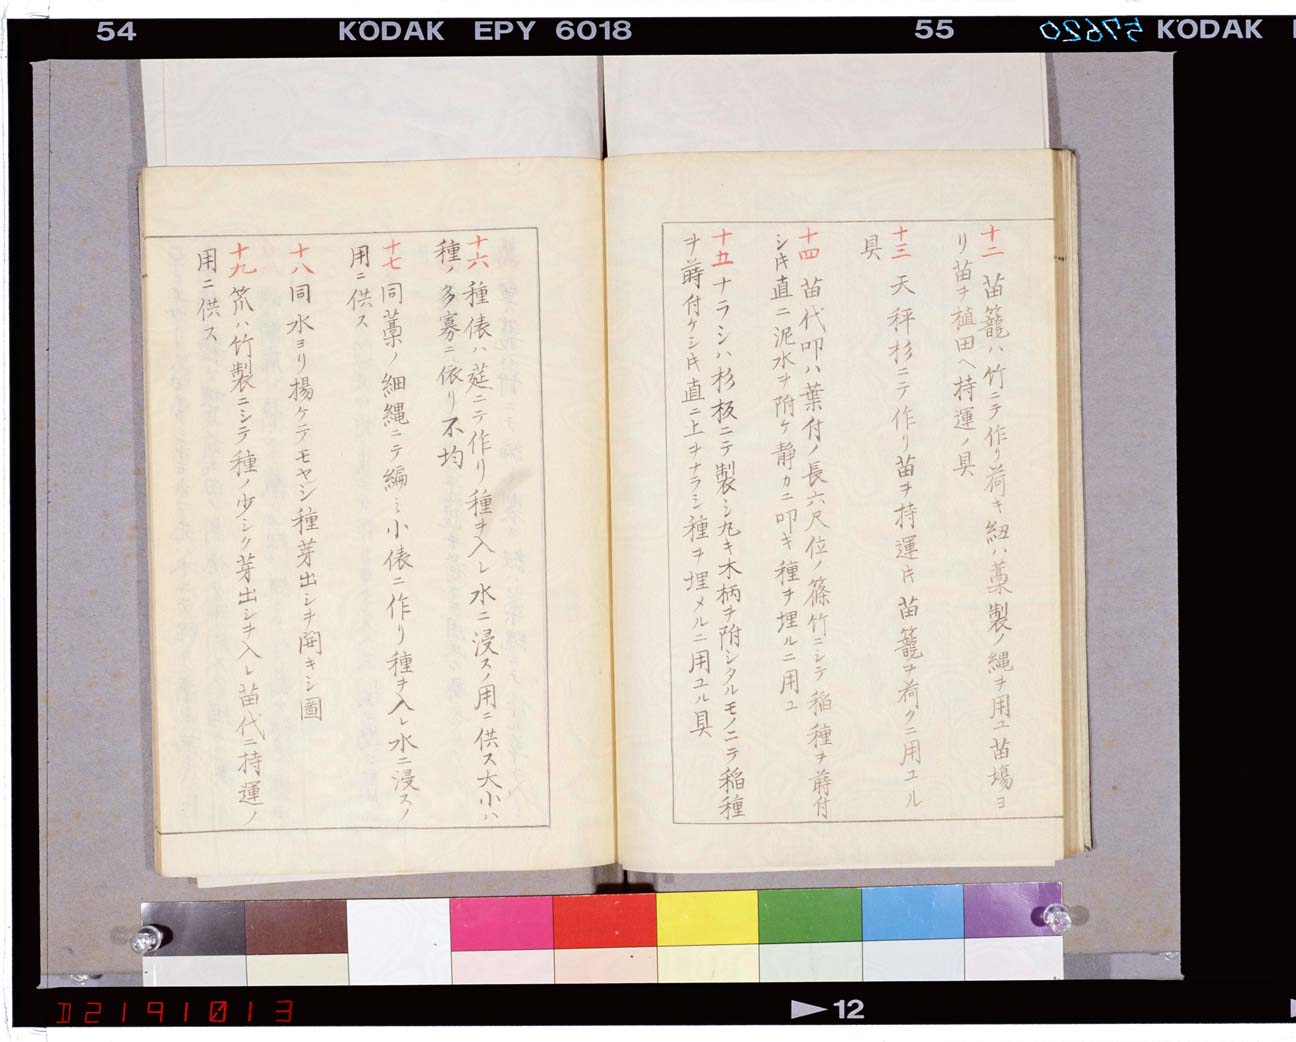 54
KODAK EPY 6018
55
57620
KODAK
十二 苗籠ハ竹ニテ作リ荷キ紐ハ藁製ノ縄ヲ用ユ苗塲ヨ
リ苗ヲ植田ヘ持運ノ具
十三 天秤杉ニテ作リ苗ヲ持運キ苗籠ヲ荷クニ用ユル
具
十四 苗代叩ハ葉付ノ長六尺位ノ篠竹ニシテ稲種ヲ蒔付
シキ直ニ泥水ヲ附ケ静カニ叩キ種ヲ埋ルニ用ユ
十五 ナラシハ杉板ニテ製シ丸キ木柄ヲ附シタルモノニテ稲種
ヲ蒔付ケシキ直ニ上ヲナラシ種ヲ埋メルニ用ユル具
十六 種俵ハ莚ニテ作リ種ヲ入レ水ニ浸スノ用ニ供ス大小ハ
種ノ多寡ニ依リ不均
十七 同藁ノ細縄ニテ編ミ小俵ニ作リ種ヲ入レ水ニ浸スノ
用ニ供ス
十八 同水ヨリ揚ケテモヤシ種芽出シヲ開キシ圖
十九 笊ハ竹製ニシテ種ノ少シク芽出シヲ入レ苗代ニ持運ノ
用ニ供ス
D2191013
12